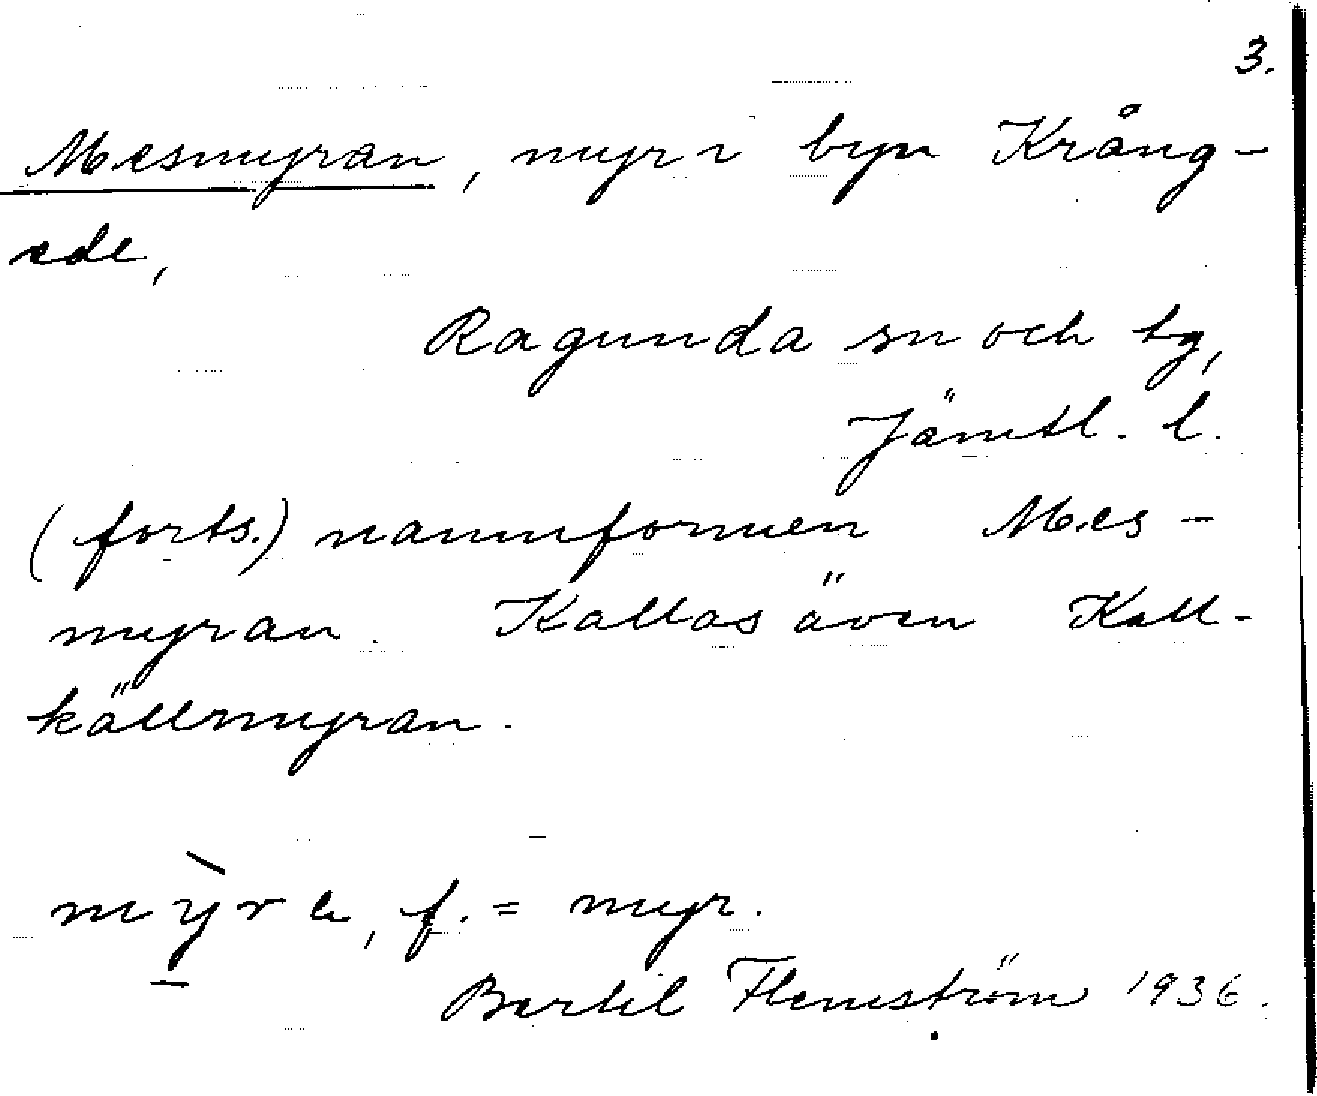 3.
Mesmyran, myr i byn Krång-
ede,
Ragunda sn och tg,
Jämtl. l.
(forts.) namnformen Mes-
myran. Kallas även Kall-
källmyran.
, f. = myr.
Bertil Flemström 1936.